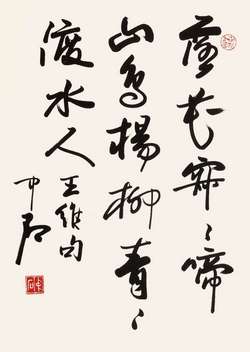 落花寂々啼
山鳥楊柳青々
渡水人
王維句
中石